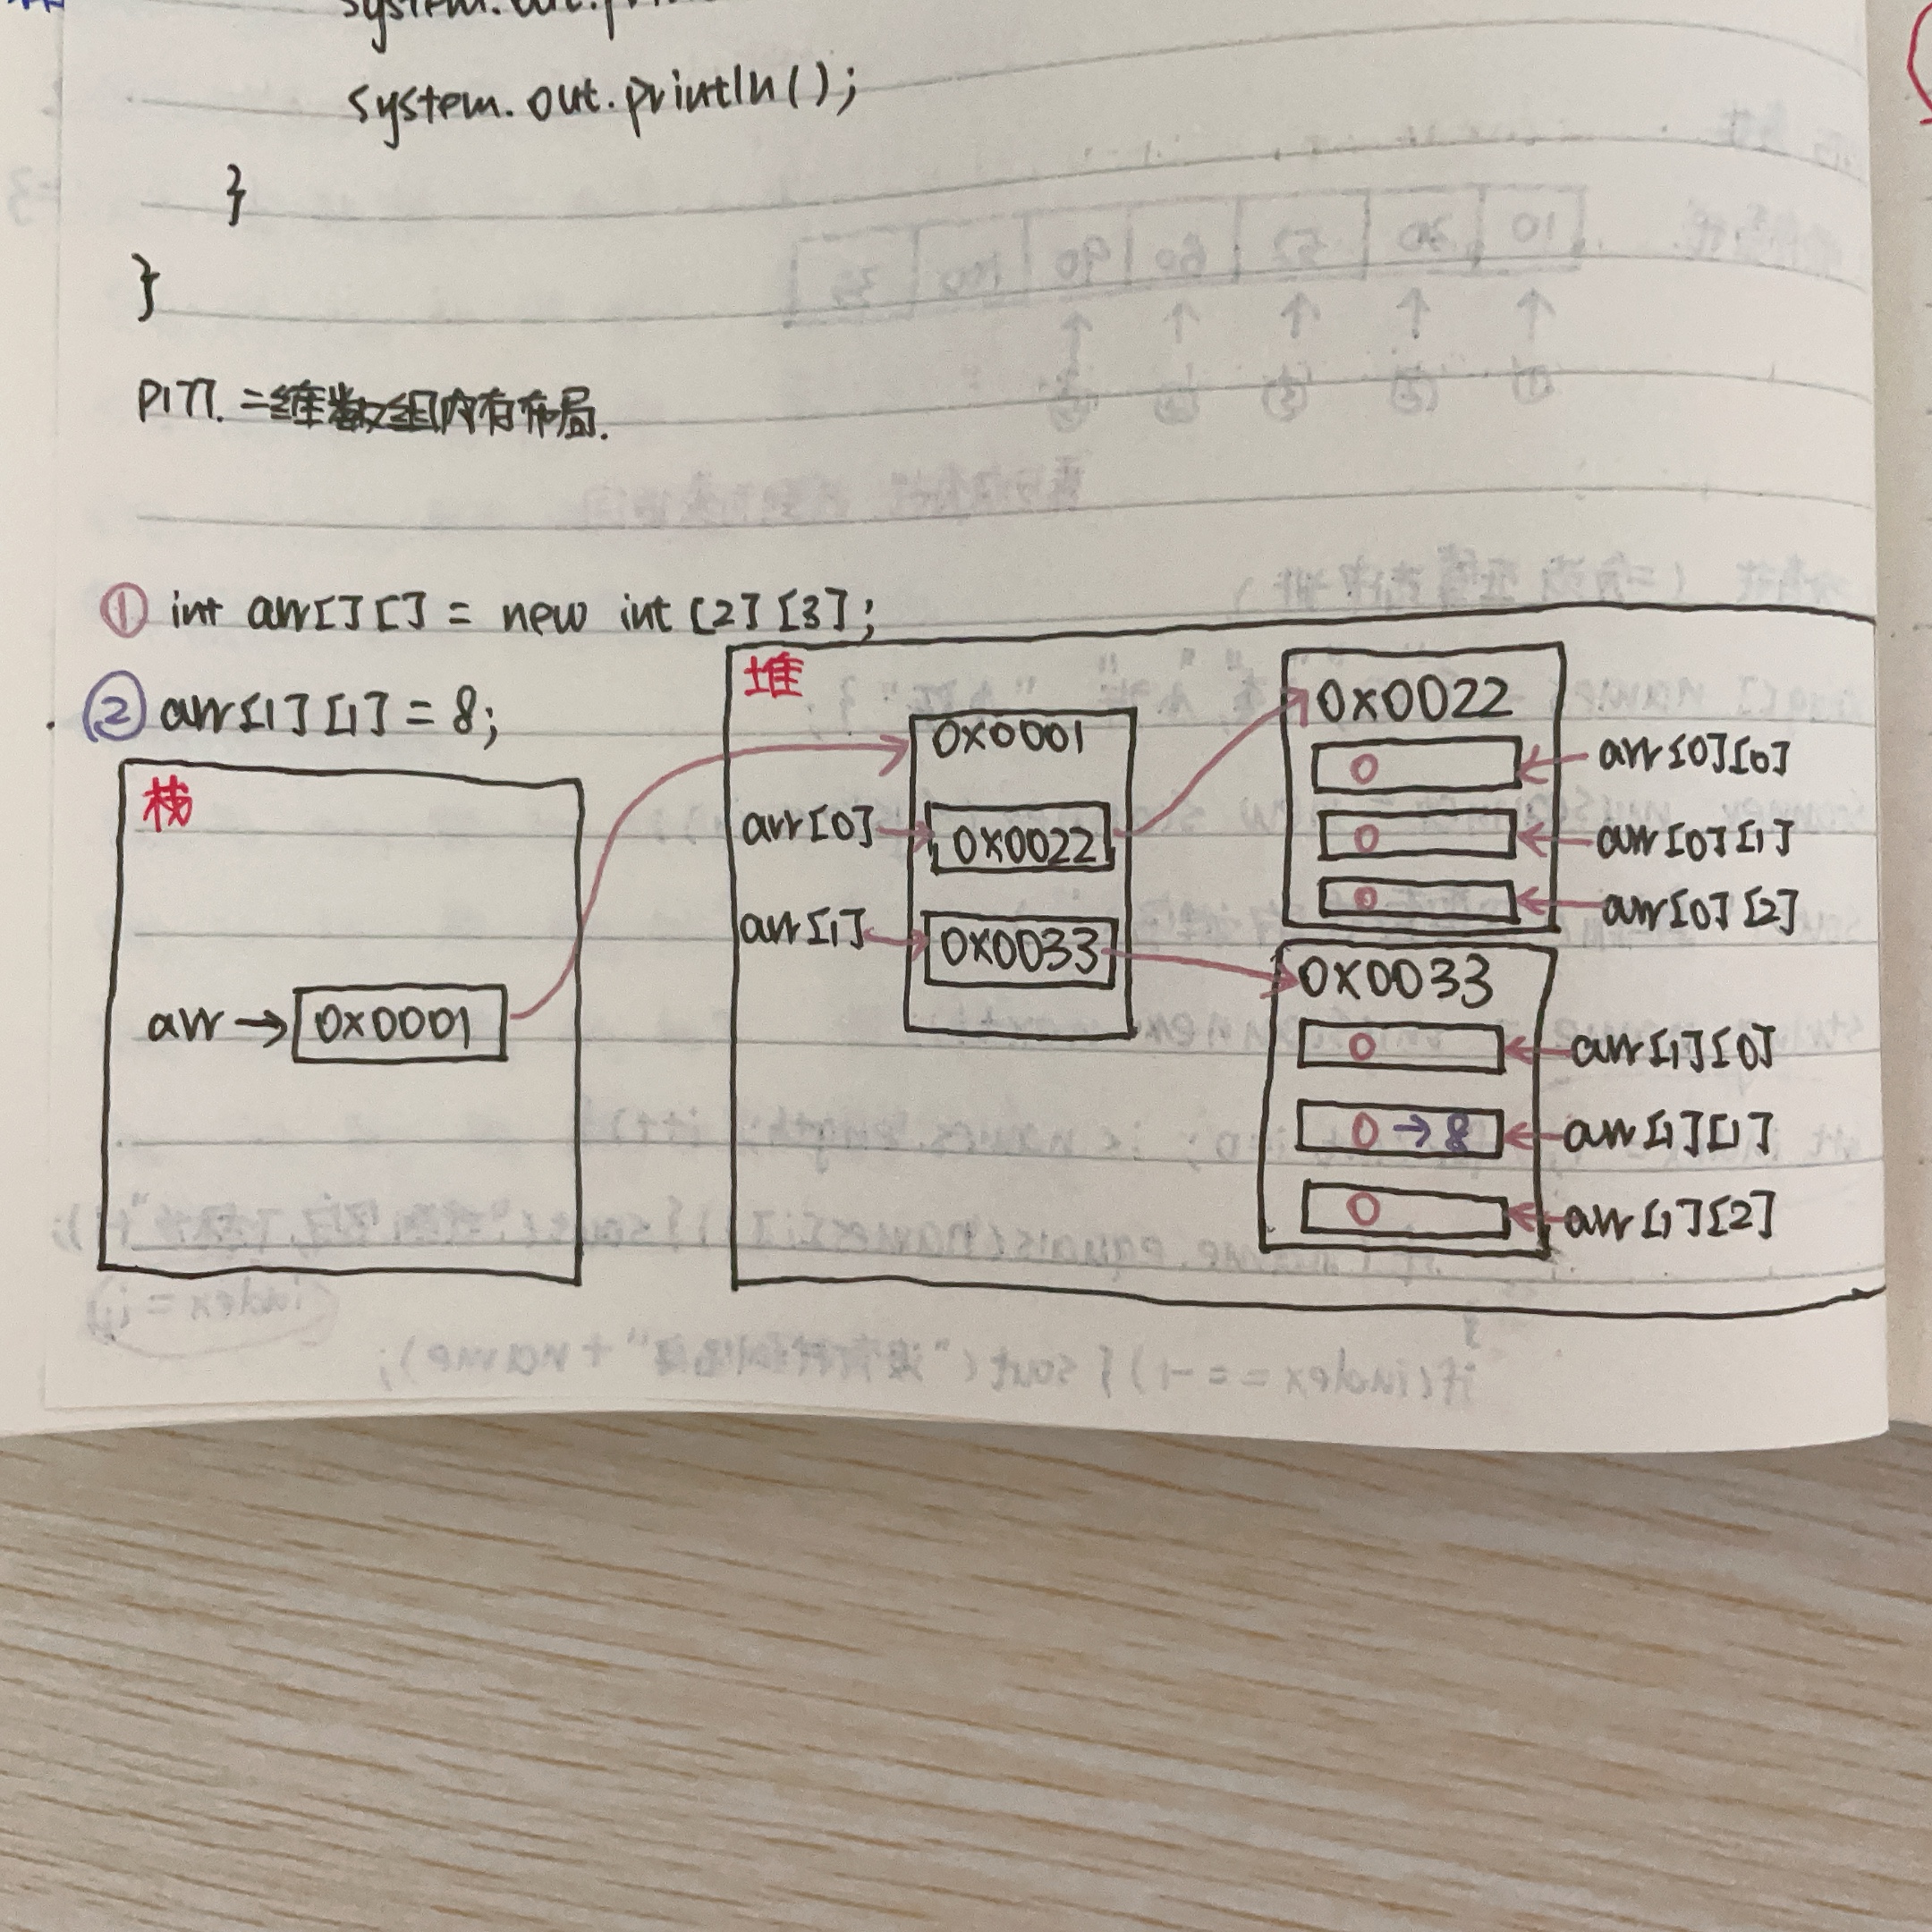 system.out.println();
}
}
P177.二维数组内存布局.
① int arr[][] = new int[2][3];
② arr[1][1] = 8;
栈
arr→ 0x0001
堆
0x0001
arr[0] 0x0022
arr[1] 0x0033
0x0022
0 arr[0][0]
0 arr[0][1]
0 arr[0][2]
0x0033
0 arr[1][0]
0→8 arr[1][1]
0 arr[1][2]